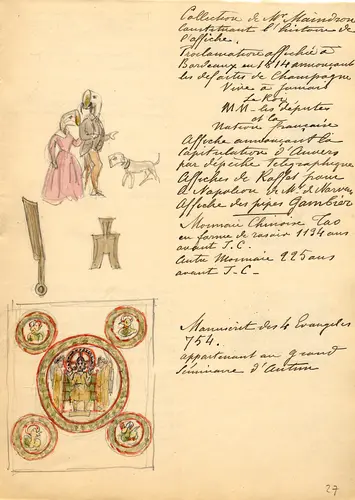 Collection de Mr Maindron
constituant l'histoire de
l'affiche.
Proclamation affichée à
Bordeaux en 1814 annonçant
les défaites de Champagne
Vive à jamais
Le Roy
M.M. les Députés
et la
Nation française
Affiche annonçant la
Capitulation d'Anvers
par dépêche télégraphique
Affiches de Raffet pour
le Napoléon de Mr de Norvins
Affiche des pipes Gambier
Monnaie Chinoise Tao
en forme de rasoir 1134 ans
avant J.C.
Autre Monnaie 225 ans
avant J.C.
Manuscrit des 4 Evangiles
754.
appartenant au grand
Séminaire d'Autun
27